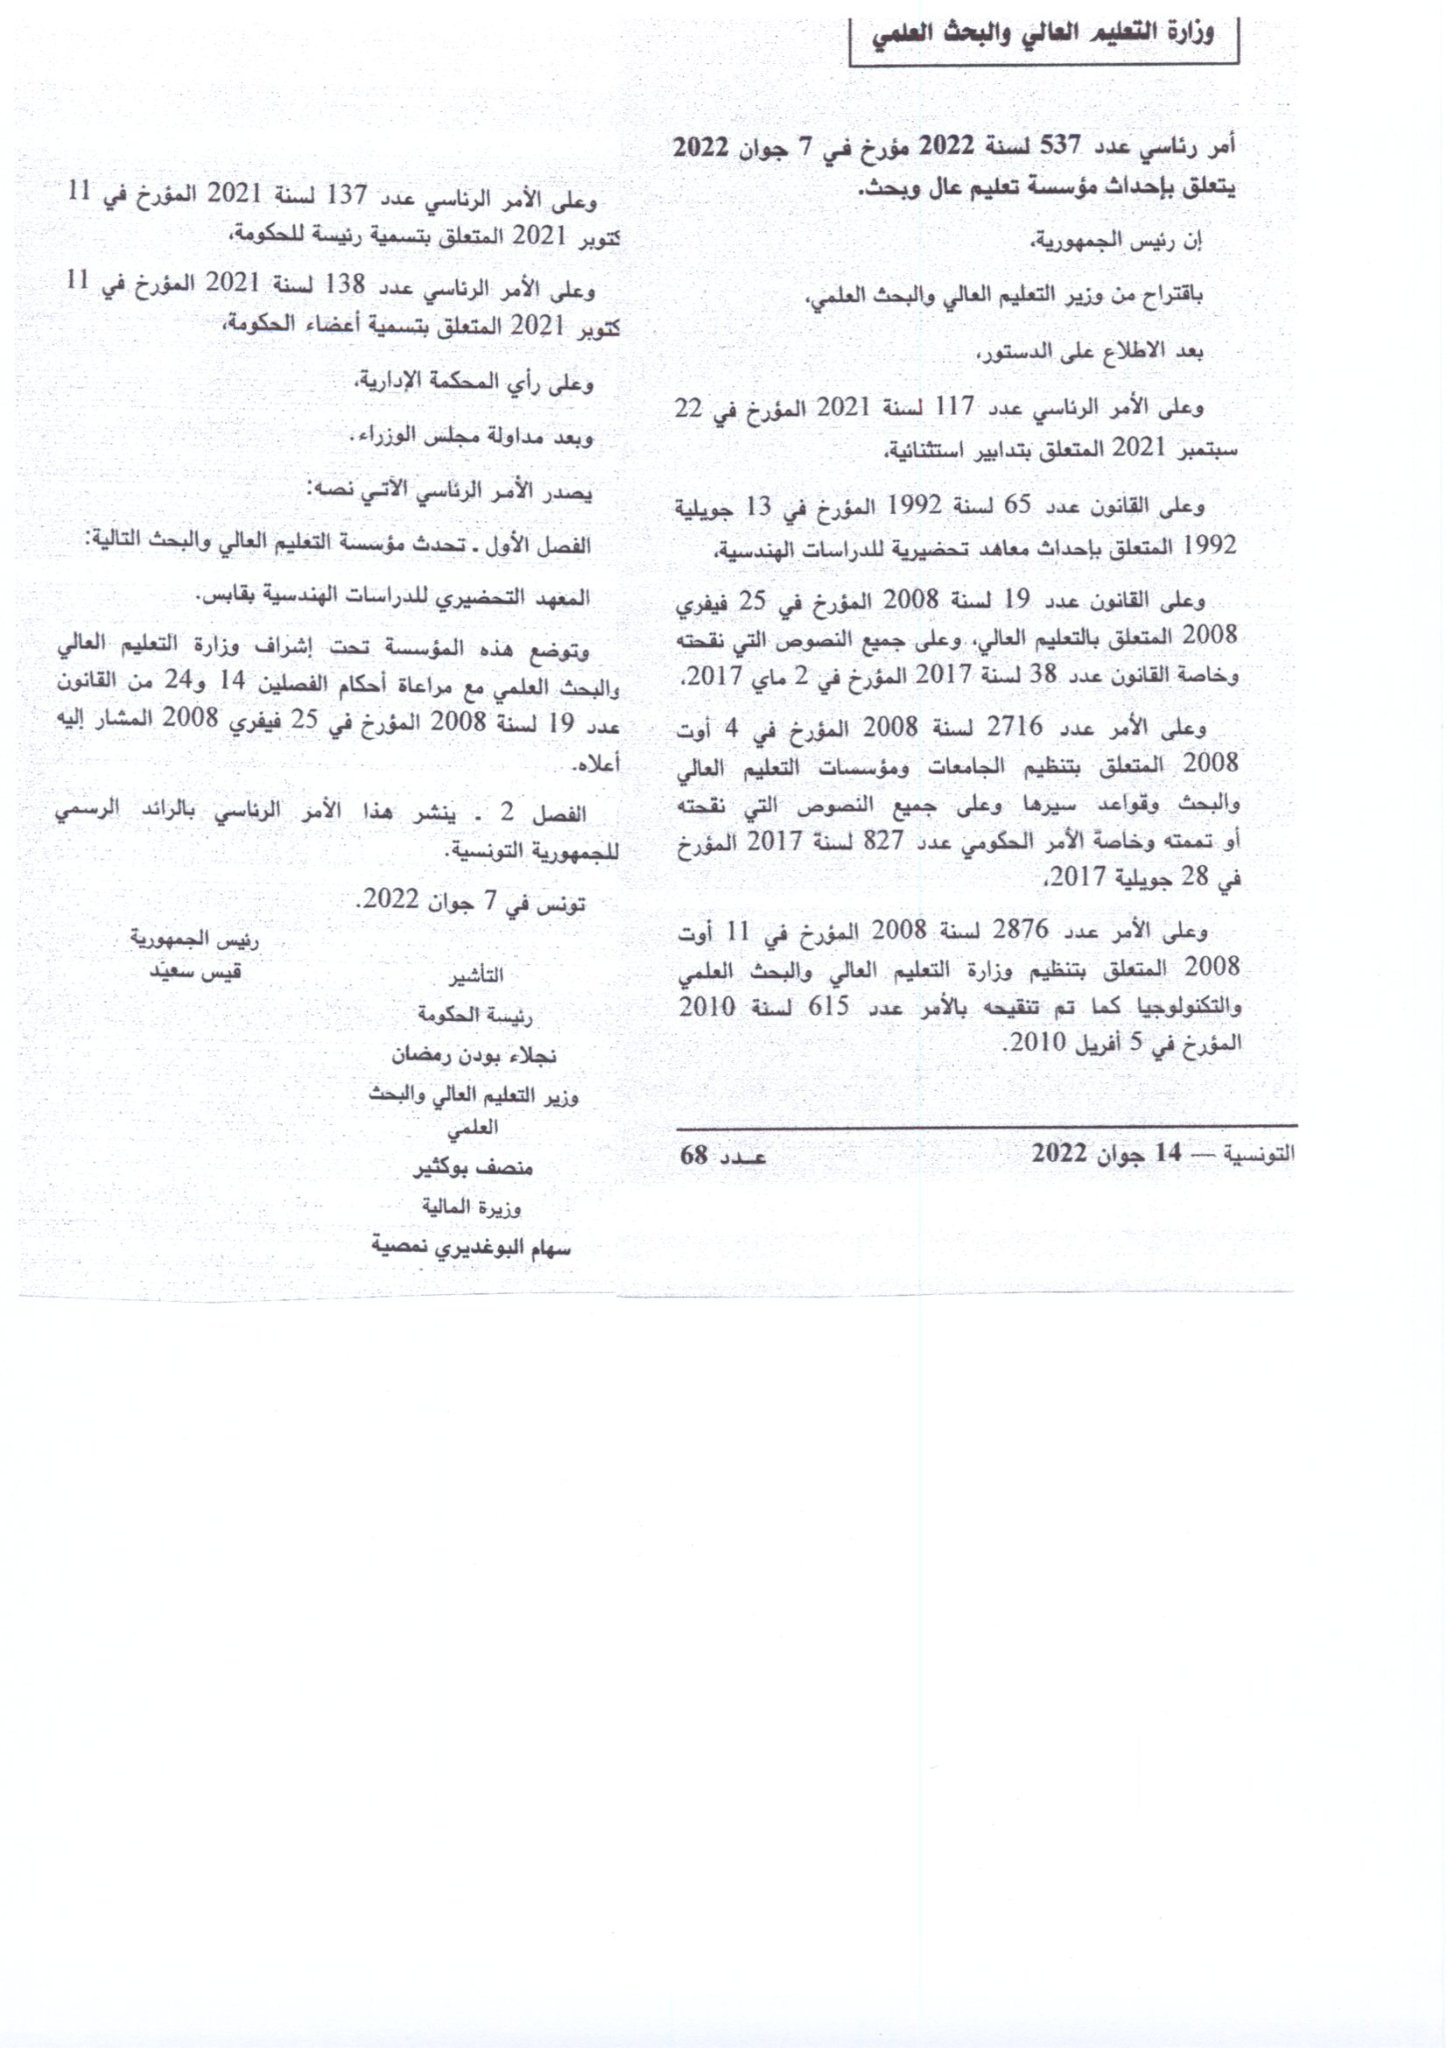 وزارة التعليم العالي والبحث العلمي
أمر رئاسي عدد 537 لسنة 2022 مؤرخ في 7 جوان 2022
يتعلق بإحداث مؤسسة تعليم عال وبحث.
إن رئيس الجمهورية،
باقتراح من وزير التعليم العالي والبحث العلمي،
بعد الاطلاع على الدستور،
وعلى الأمر الرئاسي عدد 117 لسنة 2021 المؤرخ في 22
سبتمبر 2021 المتعلق بتدابير استثنائية،
وعلى القانون عدد 65 لسنة 1992 المؤرخ في 13 جويلية
1992 المتعلق بإحداث معاهد تحضيرية للدراسات الهندسية،
وعلى القانون عدد 19 لسنة 2008 المؤرخ في 25 فيفري
2008 المتعلق بالتعليم العالي، وعلى جميع النصوص التي نقحته
وخاصة القانون عدد 38 لسنة 2017 المؤرخ في 2 ماي 2017،
وعلى الأمر عدد 2716 لسنة 2008 المؤرخ في 4 أوت
2008 المتعلق بتنظيم الجامعات ومؤسسات التعليم العالي
والبحث وقواعد سيرها وعلى جميع النصوص التي نقحته
أو تممته وخاصة الأمر الحكومي عدد 827 لسنة 2017 المؤرخ
في 28 جويلية 2017،
وعلى الأمر عدد 2876 لسنة 2008 المؤرخ في 11 أوت
2008 المتعلق بتنظيم وزارة التعليم العالي والبحث العلمي
والتكنولوجيا كما تم تنقيحه بالأمر عدد 615 لسنة 2010
المؤرخ في 5 أفريل 2010.
التونسية — 14 جوان 2022 عـدد 68
وعلى الأمر الرئاسي عدد 137 لسنة 2021 المؤرخ في 11
كتوبر 2021 المتعلق بتسمية رئيسة للحكومة،
وعلى الأمر الرئاسي عدد 138 لسنة 2021 المؤرخ في 11
كتوبر 2021 المتعلق بتسمية أعضاء الحكومة،
وعلى رأي المحكمة الإدارية،
وبعد مداولة مجلس الوزراء.
يصدر الأمر الرئاسي الآتي نصه:
الفصل الأول ـ تحدث مؤسسة التعليم العالي والبحث التالية:
المعهد التحضيري للدراسات الهندسية بقابس.
وتوضع هذه المؤسسة تحت إشراف وزارة التعليم العالي
والبحث العلمي مع مراعاة أحكام الفصلين 14 و24 من القانون
عدد 19 لسنة 2008 المؤرخ في 25 فيفري 2008 المشار إليه
أعلاه.
الفصل 2 ـ ينشر هذا الأمر الرئاسي بالرائد الرسمي
للجمهورية التونسية.
تونس في 7 جوان 2022.
رئيس الجمهورية
قيس سعيّد
التأشير
رئيسة الحكومة
نجلاء بودن رمضان
وزير التعليم العالي والبحث
العلمي
منصف بوكثير
وزيرة المالية
سهام البوغديري نمصية